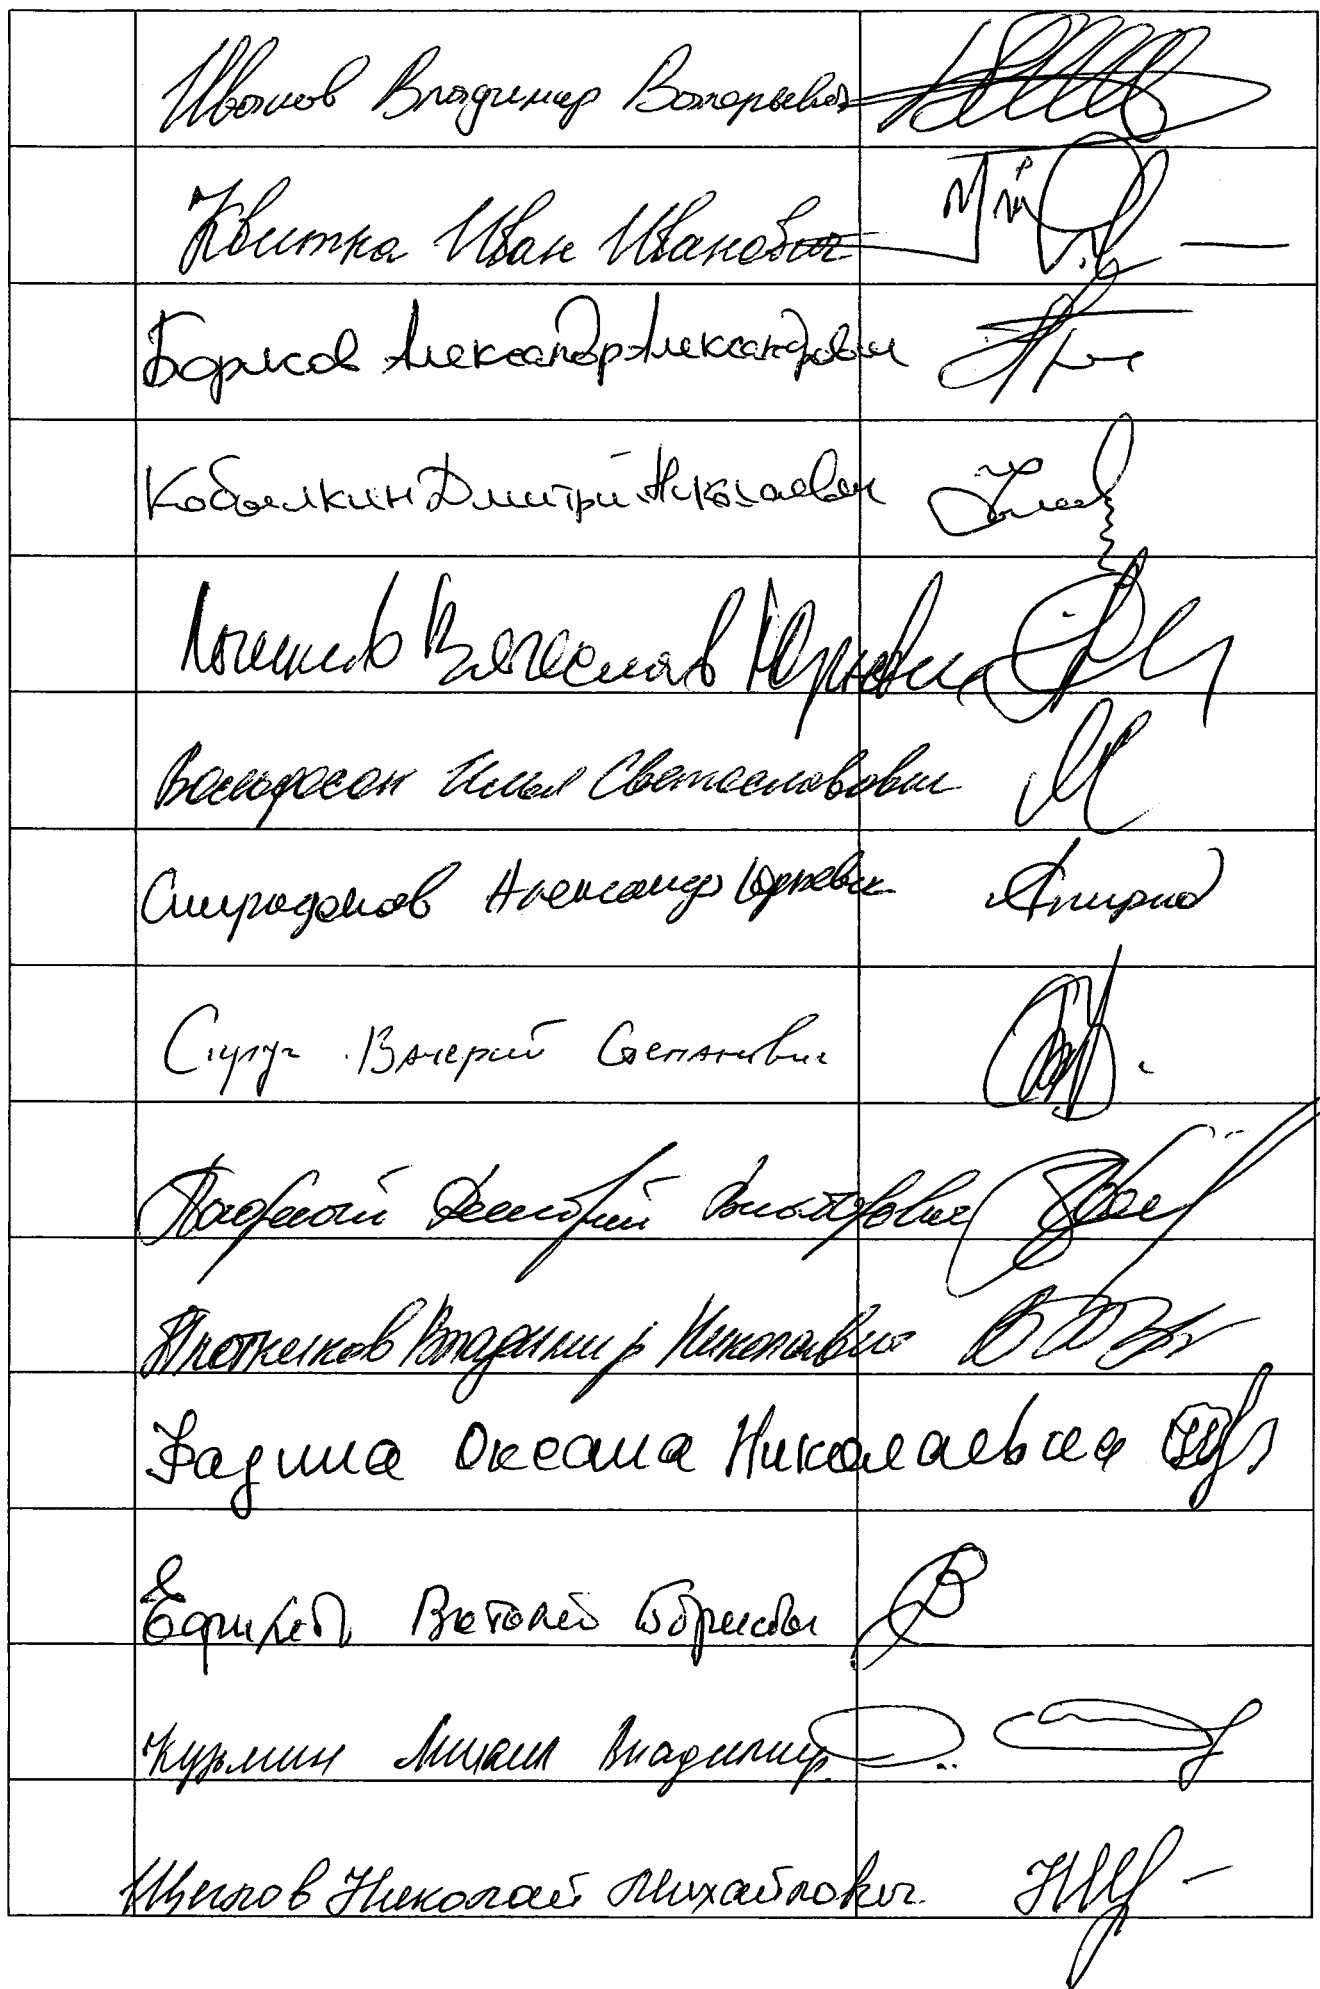 Иванов Владимир Валерьевич
Квитка Иван Иванович
Борисов Александр Александрович
Кобылкин Дмитрий Николаевич
Вячеслав Юрьевич
Вольфсон Илья Светославович
Спиридонов Александр Юрьевич
Валерий Степанович
Дмитрий Викторович
Плотников Владимир Николаевич
Оксана Николаевна
Виталий Борисович
Кузьмин Михаил Владимир
Щеглов Николай Михайлович